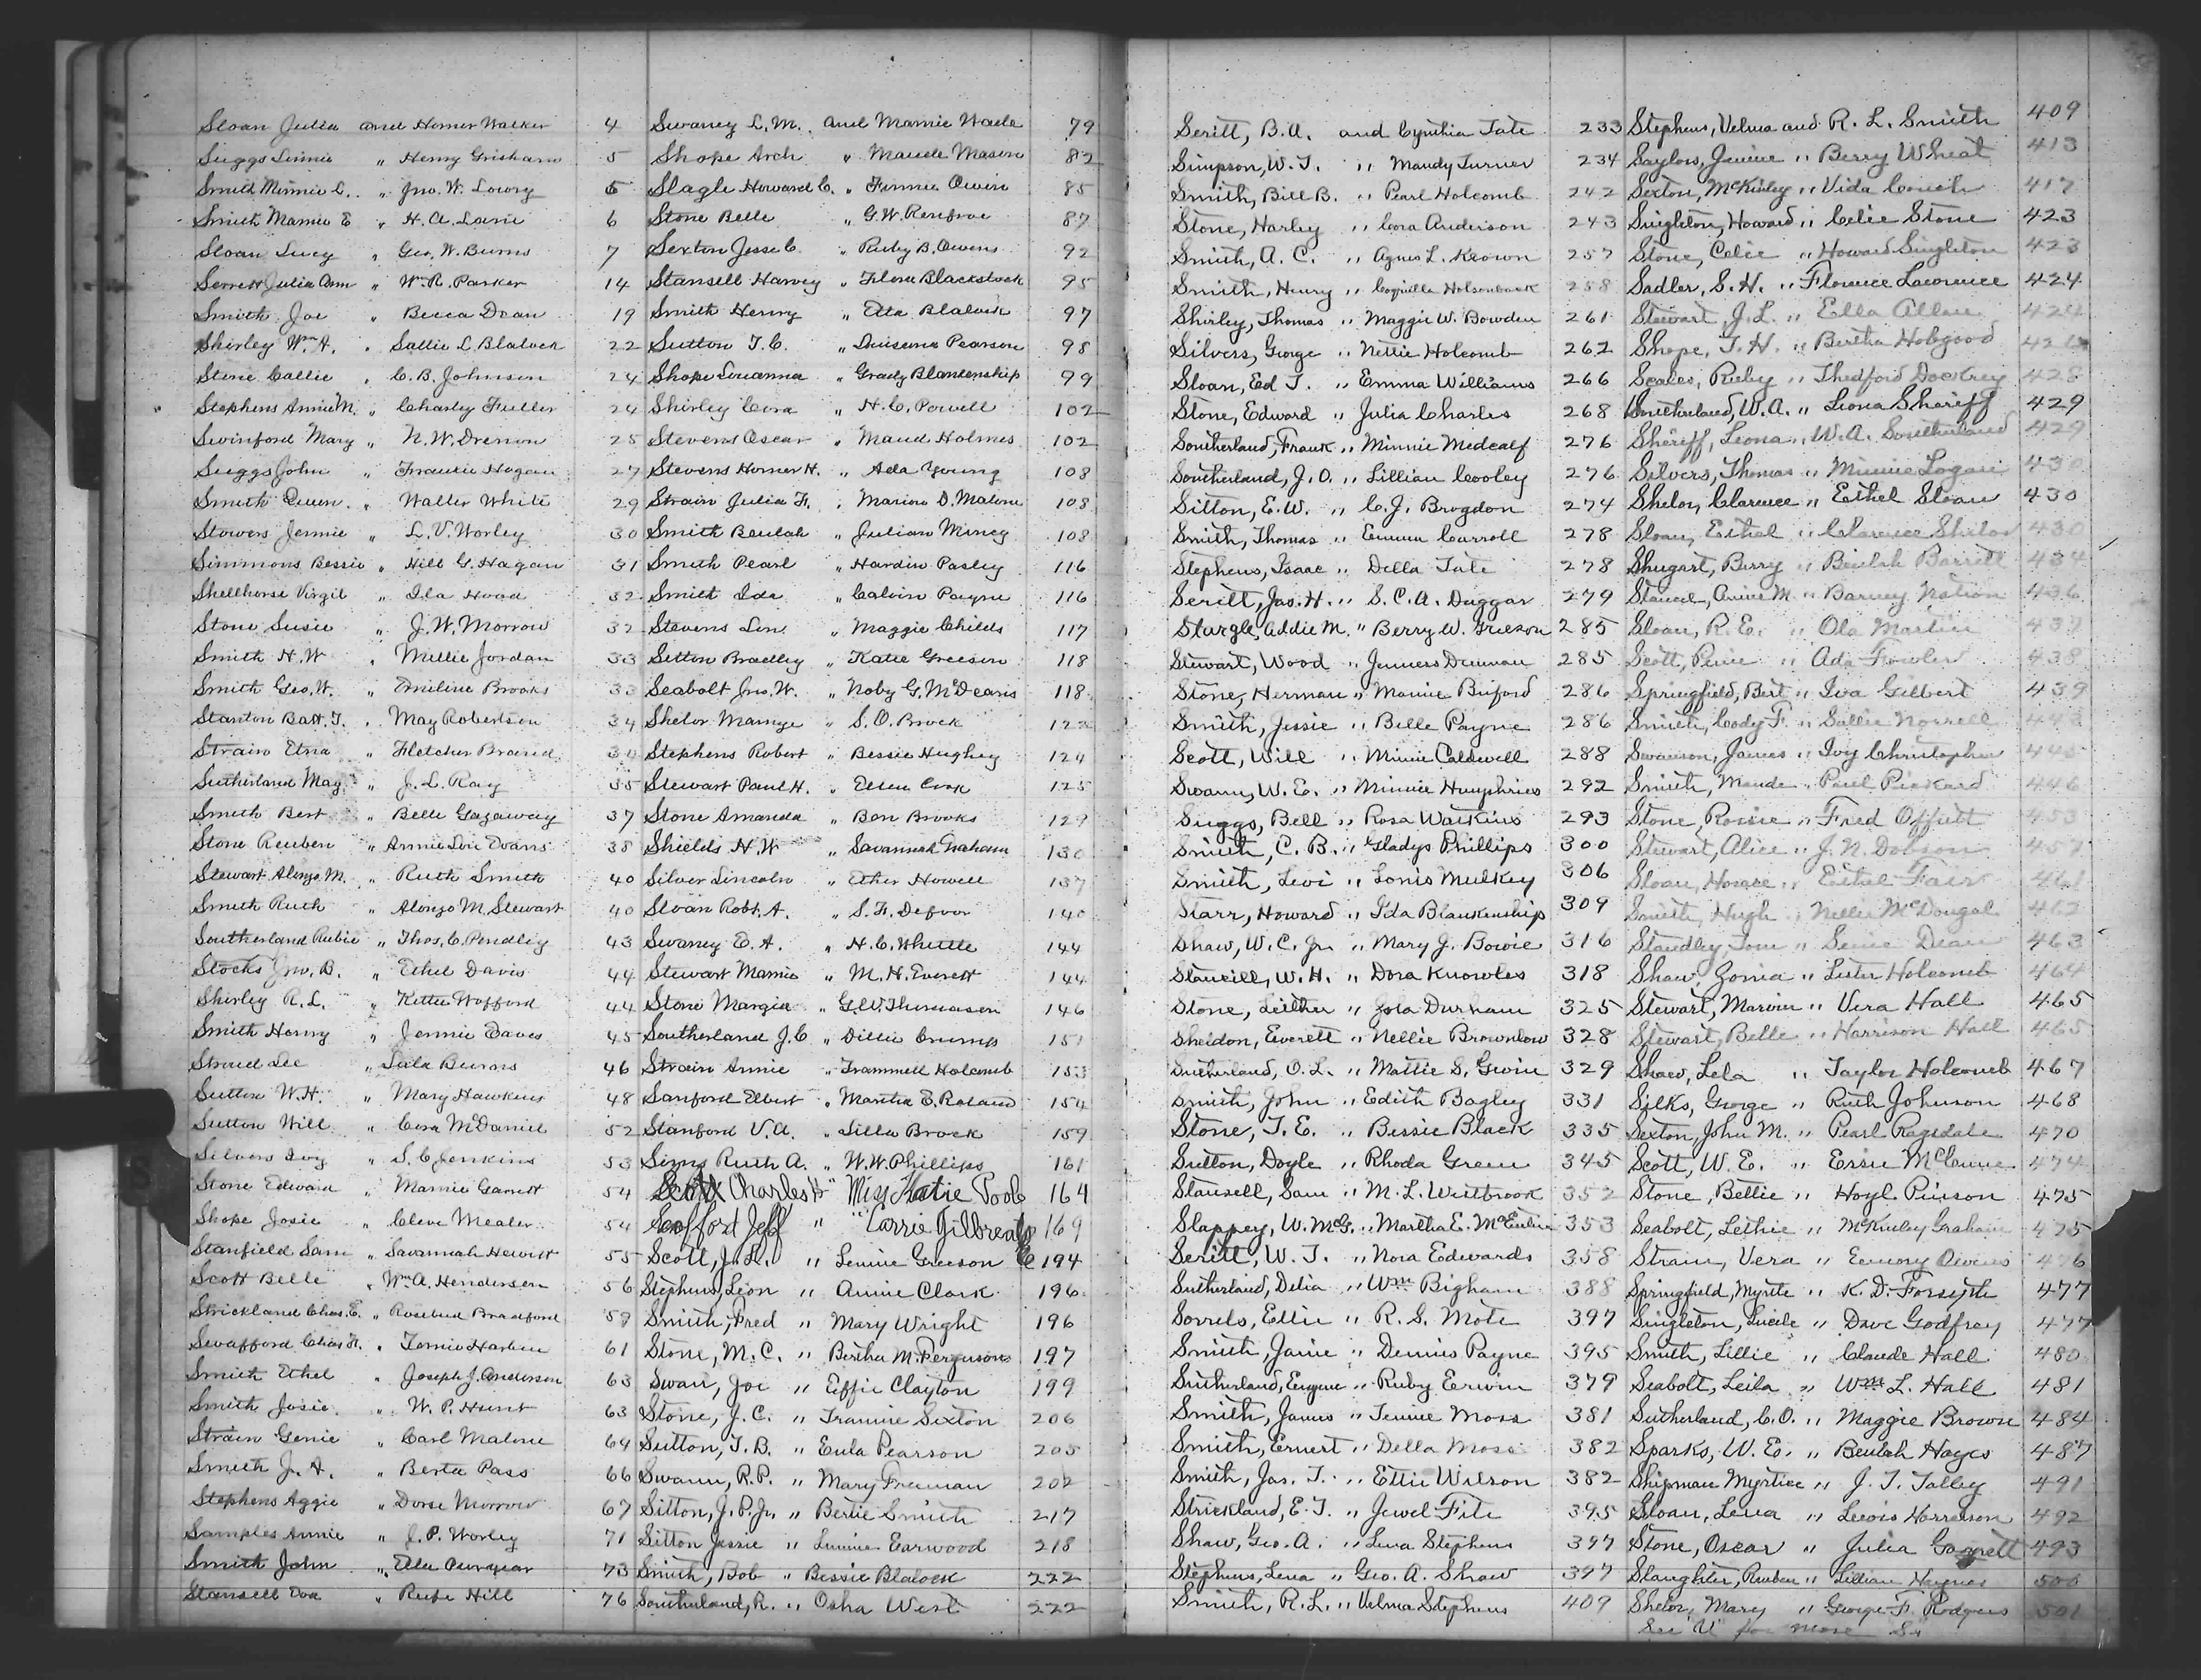 Sloan Julia and Homer Walker 4
Suggs Linnie " Henry Grisham 5
Smid Minnie L. " Jno. W. Lowry 5
Smith Mamie E " H. A. Lane 6
Sloan Lucy " Geo. W. Burns 7
Serrett Julia Ann " Wm. R. Parker 14
Smith Joe " Becca Dean 19
Shirley Wm. A. " Sallie L. Blalock 22
Stone Callie " C. B. Johnson 24
Stephens Annie M. " Charley Fuller 24
Swinford Mary " N. W. Drennon 25
Suggs John " Frankie Hogan 27
Smith Queen " Walter White 29
Stowers Jennie " L. V. Worley 30
Simmons Bessie " Hill G. Hagan 31
Shellhorse Virgil " Ila Hood 32
Stone Susie " J. W. Morrow 32
Smith H. W " Millie Jordan 33
Smith Geo. W. " Emiline Brooks 33
Stanton Batt. T. " May Robertson 34
Strain Etna " Fletcher Brand 34
Sutherland May " J. L. Ray 35
Smith Bert " Belle Gazaway 37
Stone Reuben " Annie Lou Evans 38
Stewart Alonzo M. " Ruth Smith 40
Smith Ruth " Alonzo M. Stewart 40
Southerland Rubie " Thos. C. Pendley 43
Stocks Jno. B. " Ethel Davis 44
Shirley R. L. " Kittie Wofford 44
Smith Henry " Jennie Eaves 45
Stroud Lee " Lula Burns 46
Sutton W. H. " Mary Hawkins 48
Sutton Will " Cora McDaniel 52
Silvers Ivy " S. C. Jenkins 53
Stone Edward " Mamie Garrett 54
Shope Josie " Cleve Mealer 54
Stanfield Sam " Savannah Hewitt 55
Scott Belle " Wm. A. Henderson 56
Strickland Chas. E. " Rosebud Bradford 59
Swafford Chas. H. " Tomie Harlem 61
Smith Ethel " Joseph J. Anderson 63
Smith Josie " W. P. Hunt 63
Strain Genie " Carl Malone 64
Smith J. A. " Berta Pass 66
Stephens Aggie " Dorse Morrow 67
Samples Annie " J. P. Worley 71
Smith John " Ella Puryear 73
Stansell Eva " Rufe Hill 76
Swaney L. M. and Mamie Wade 79
Shope Arch " Maude Mason 82
Slagle Howard C. " Finnie Owin 85
Stone Belle " G. W. Renfroe 87
Sexton Jesse C. " Ruby B. Owens 92
Stansell Harvey " Flora Blackstock 95
Smith Henry " Etta Blalock 97
Sutton T. C. " Louisena Pearson 98
Shope Louanna " Grady Blankenship 99
Shirley Cora " H. C. Powell 102
Stevens Oscar " Maud Holmes 102
Stevens Homer H. " Ada Young 108
Strain Julia F. " Marion D. Malone 108
Smith Beulah " Julian Mincy 108
Smith Pearl " Hardin Pasley 116
Smith Ida " Calvin Payne 116
Stevens Lon " Maggie Childs 117
Sitton Bradley " Katie Greeson 118
Seabolt Jno. W. " Noby G. McDearis 118
Shelor Mamye " S. O. Brock 122
Stephens Robert " Bessie Hughey 124
Stewart Paul H. " Ellen Cook 125
Stone Amanda " Ben Brooks 129
Shields H. W " Savannah Graham 130
Silver Lincoln " Ether Howell 137
Sloan Robt. A. " S. F. Defoor 140
Swaney E. A. " H. C. Whittle 144
Stewart Mamie " M. H. Everett 144
Stone Margie " G. W. Thomason 146
Southerland J. C " Dillie Crump 151
Strain Annie " Trammell Holcomb 153
Sanford Elbert " Martha E. Roland 154
Stanford V. A. " Lilla Brock 159
Sims Ruth A. " W. W. Phillips 161
Scott Charles H " Miss Katie Poole 164
Seofford Jeff " Carrie Gilbreath 169
Scott, J. H. " Lennie Greeson 194
Stephens, Leon " Annie Clark 196
Smith, Fred " Mary Wright 196
Stone, M. C. " Bertha M. Ferguson 197
Swan, Joe " Effie Clayton 199
Stone, J. C. " Frannie Sexton 206
Sutton, T. B. " Eula Pearson 205
Swann, R. P. " Mary Freeman 202
Sitton, J. P. Jr. " Bertie Smith 217
Sitton Jessie " Linnie Earwood 218
Smith, Bob " Bessie Blalock 222
Southerland, R. " Osha West 222
Seritt, B. A. and Cynthia Tate 233
Simpson, W. T. " Mandy Turner 234
Smith, Bill B. " Pearl Holcomb 242
Stone, Harley " Cora Anderson 243
Smith, A. C. " Agnes L. Keown 257
Smith, Henry " Coquille Holsonback 258
Shirley, Thomas " Maggie W. Bowden 261
Silvers, George " Nettie Holcomb 262
Sloan, Ed T. " Emma Williams 266
Stone, Edward " Julia Charles 268
Southerland, Frank " Minnie Medcalf 276
Southerland, J. O. " Lillian Cooley 276
Sitton, E. W. " C. J. Brogdon 274
Smith, Thomas " Emma Carroll 278
Stephens, Isaac " Della Tate 278
Seritt, Jas. H. " S. C. A. Duggar 279
Sturgle, Addie M. " Berry W. Greeson 285
Stewart, Wood " Jenners Dunman 285
Stone, Herman " Mamie Buford 286
Smith, Jessie " Belle Payne 286
Scott, Will " Minnie Caldwell 288
Swann, W. E. " Minnie Humphries 292
Suggs, Bell " Rosa Watkins 293
Smith, C. B. " Gladys Phillips 300
Smith, Levi " Lonis Mulkey 306
Starr, Howard " Ida Blankenship 309
Shaw, W. C. Jr. " Mary J. Bowie 316
Stancill, W. H. " Dora Knowles 318
Stone, Luther " Zola Durham 325
Sheldon, Everett " Nellie Brownlow 328
Sutherland, O. L. " Mattie S. Gwin 329
Smith, John " Edith Bagley 331
Stone, T. E. " Bessie Black 335
Sutton, Doyle " Rhoda Green 345
Stansell, Sam " M. L. Westbrook 352
Slappey, W. McG. " Martha E. McEntire 353
Seritt, W. T. " Nora Edwards 358
Sutherland, Delia " Wm Bigham 388
Sovuls, Ellie " R. G. Mote 397
Smith, Janie " Dennis Payne 395
Sutherland, Eugene " Ruby Erwin 379
Smith, James " Tennie Moss 381
Smith, Ernest " Della Moss 382
Smith, Jas. T. " Ettie Wilson 382
Strickland, E. T. " Jewel Fite 395
Shaw, Geo. A. " Lena Stephens 397
Stephens, Lena " Geo. A. Shaw 397
Smith, R. L. " Velma Stephens 409
Stephens, Velma and R. L. Smith 409
Saylors, Jennie " Berry Wheat 413
Sexton, McKinley " Vida Couch 417
Singleton, Howard " Celie Stone 423
Stone, Celie " Howard Singleton 423
Sadler, S. H. " Florence Lawrence 424
Stewart J. L. " Ella Allen 424
Shope, T. H. " Bertha Hobgood 426
Scales, Ruby " Thedford Dockrey 428
Southerland, W. A. " Leona Sheriff 429
Sheriff, Leona " W. A. Southerland 429
Silvers, Thomas " Minnie Logan 430
Shelor, Clarence " Ethel Sloan 430
Sloan, Ethel " Clarence Shelor 430
Shugart, Berry " Beulah Barrett 434
Stancel, Annie M. " Barney Nation 436
Sloan, R. E. " Ola Martin 437
Scott, " Ada Fowler 438
Springfield, Bert " Iva Gilbert 439
Smith, Cody F. " Sallie Norrell 443
Swanson, James " Ivy Christopher 445
Smith, Maude " Paul Pickard 446
Stone, Rossie " Fred Offutt 453
Stewart, Alice " J. N. Dobson 457
Sloan, Horace " Ethel Fair 461
Smith, Hugh " Nellie McDougal 462
Standley, Tom " Senie Dean 463
Shaw, Zonia " Luter Holcomb 464
Stewart, Marvin " Vera Hall 465
Stewart, Belle " Harrison Hall 465
Shaw, Lela " Taylor Holcomb 467
Silks, George " Ruth Johnson 468
Sexton, John M. " Pearl Ragsdale 470
Scott, W. E. " Essie McClure 474
Stone, Bettie " Hoyl Pinson 475
Seabolt, Lethie " McKinley Graham 475
Strain, Vera " Emory Owens 476
Springfield, Myrtle " K. D. Forsyth 477
Singleton, Lucile " Dave Godfrey 477
Smith, Lillie " Claude Hall 480
Seabolt, Leila " Wm L. Hall 481
Sutherland, C. O. " Maggie Brown 484
Sparks, W. E. " Beulah Hayes 487
Shipman Myrtice " J. T. Talley 491
Sloan, Lena " Lewis Harrison 492
Stone, Oscar " Julia Garrett 493
Slaughter, Reuben " Lillian Haynes 500
Shelor, Mary " George F. Rodgers 501
See "U" for more Ss